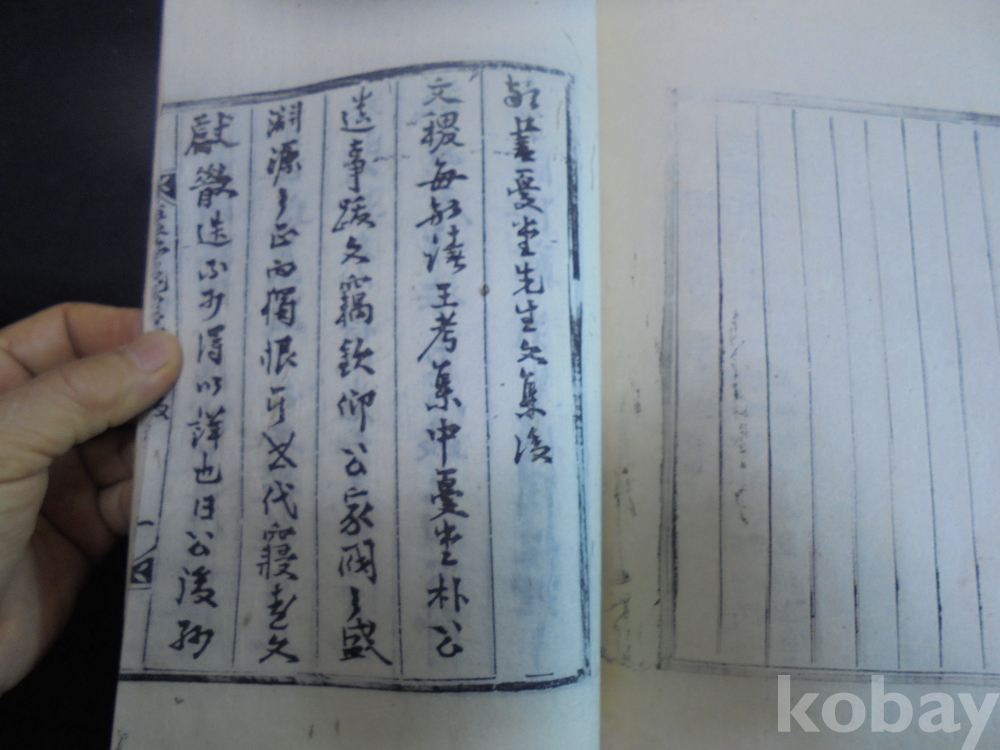 敬書憂堂先生文集後
文稷每敬讀王考集中憂堂朴公
遺事跋文竊欽仰公家閥之盛
淵源之正而獨恨乎世代寢遠文
獻散逸不可得以詳也日公後孫
kobay